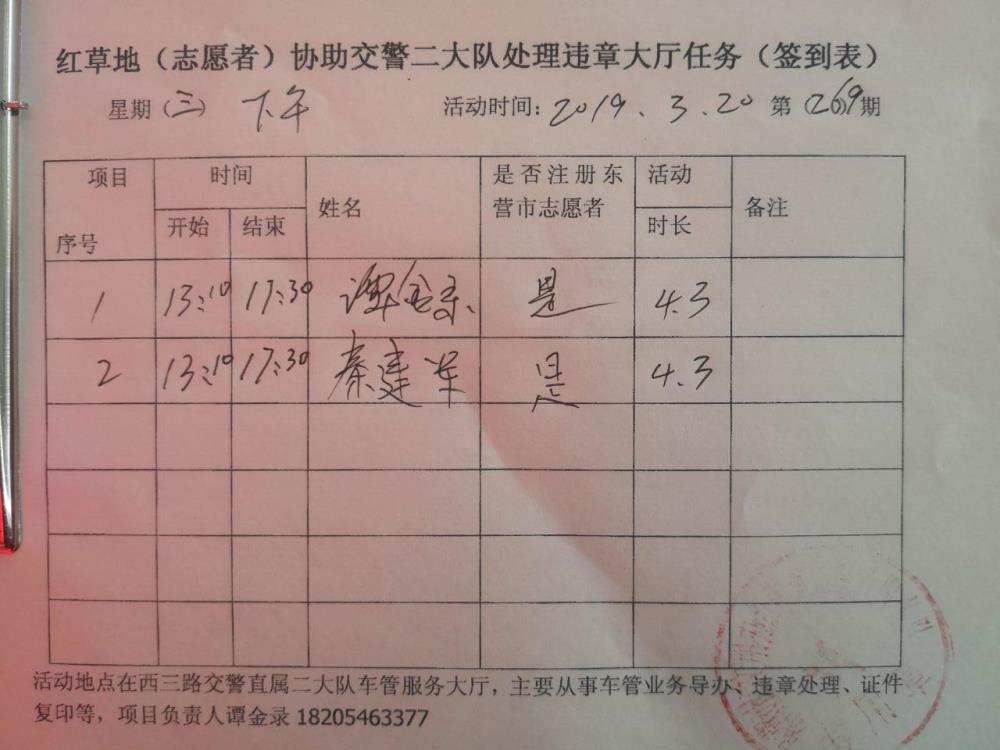 红草地（志愿者）协助交警二大队处理违章大厅任务（签到表）
星期（三）下午 活动时间：2019.3.20 第（269）期
项目 时间 姓名 是否注册东营市志愿者 活动时长 备注
序号 开始 结束
1 13:10 17:30 谭金录 是 4.3
2 13:10 17:30 秦建军 是 4.3
活动地点在西三路交警直属二大队车管服务大厅，主要从事车管业务导办、违章处理、证件
复印等，项目负责人谭金录 18205463377